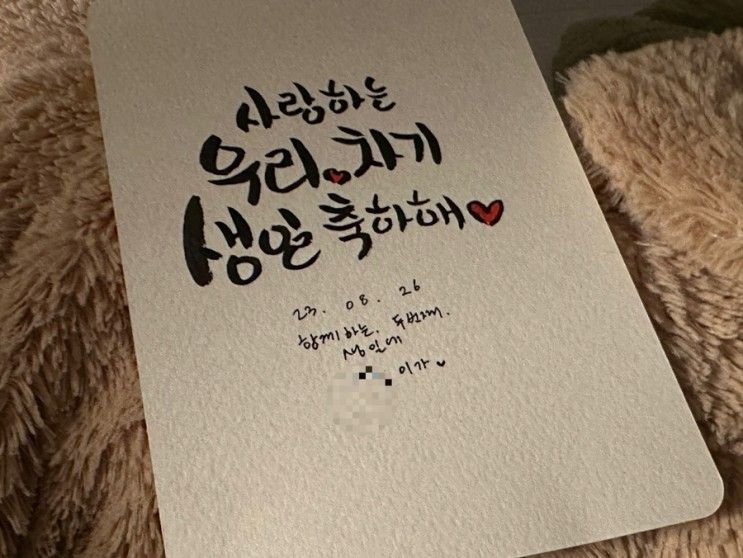 사랑하는
우리 차기
생일 축하해
23. 08. 26
함께하는, 두번째.
생일에
이가